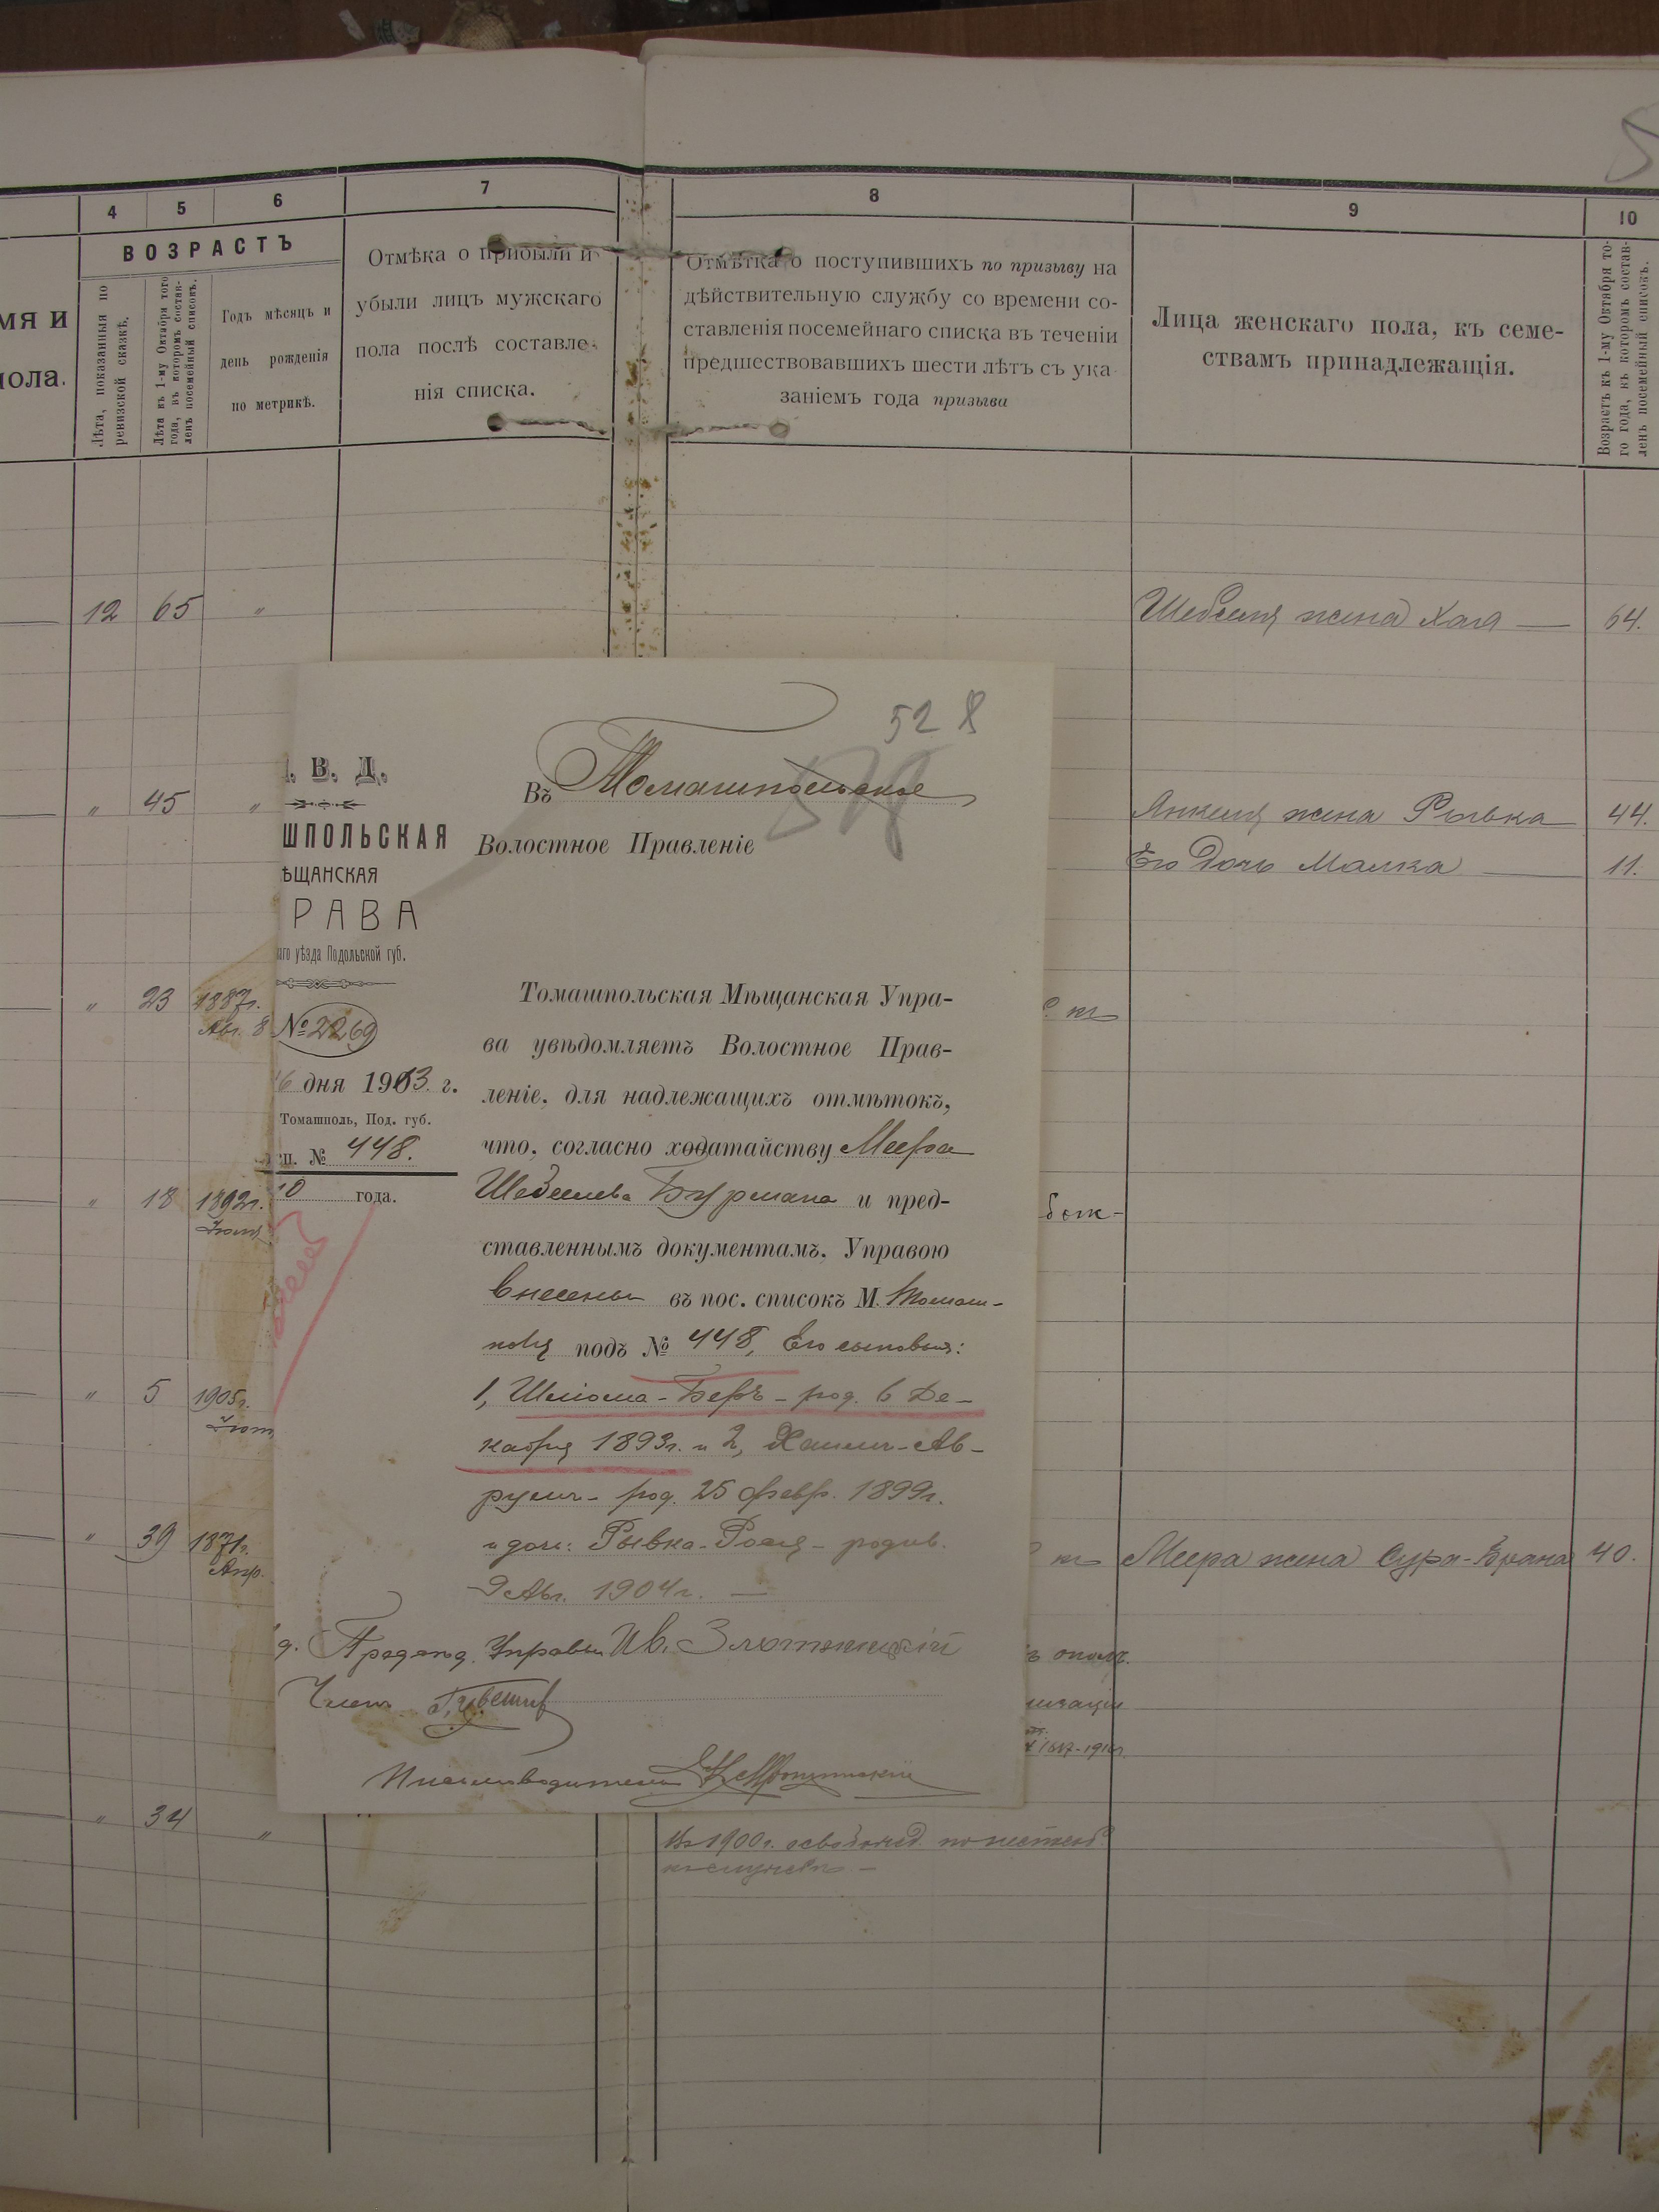 4 5 6 7 8 9 10
ВОЗРАСТЪ
мя и
пола.
Лѣта, показанныя по
ревизской сказкѣ.
Лѣта къ 1-му Октября того
года, въ которомъ состав-
ленъ посемейный списокъ.
Годъ мѣсяцъ и
день рожденія
по метрикѣ.
Отмѣка о прибыли и
убыли лицъ мужскаго
пола послѣ составле-
нія списка.
Отмѣтка о поступившихъ по призыву на
дѣйствительную службу со времени со-
ставленія посемейнаго списка въ теченіи
предшествовавшихъ шести лѣтъ съ ука-
заніемъ года призыва
Лица женскаго пола, къ семе-
ствамъ принадлежащія.
Возрастъ къ 1-му Октября то-
го года, въ которомъ состав-
ленъ посемейный списокъ.
12 65 "
Шевселя жена Хая — 64.
" 45 "
Янкеля жена Рывка 44.
Его дочь Малка — 11.
" 23 1887г.
Авг. 8
" 18 1892г.
" 5 1905г.
" 39 1871г.
Апр.
Меера жена Сура-Брана 40.
ополч.
1917-1918г.
" 34 "
Въ 1900г.
52 8
. В. Д.
ШПОЛЬСКАЯ
ѢЩАНСКАЯ
РАВА
аго уѣзда Подольской губ.
№ 2269
6 дня 1913. г.
Томашполь, Под. губ.
сп. № 448.
10 года.
Въ Томашпольское
Волостное Правленіе
Томашпольская Мѣщанская Упра-
ва увѣдомляетъ Волостное Прав-
леніе, для надлежащихъ отмѣтокъ,
что, согласно ходатайству Меера
Шевселева Бурмана и пред-
ставленнымъ документамъ, Управою
внесены въ пос. списокъ М. Томаш-
поля подъ № 448, Его сыновья:
1, Шлiома-Беръ - род. 6 Де-
кабря 1893г. и 2, Хаимъ-Ав-
румъ - род. 25 февр. 1899г.
и дочь: Рывка-Рося - родив.
9 Авг. 1904г. —
Председ. Управы Ив.
Членъ
Письмоводитель